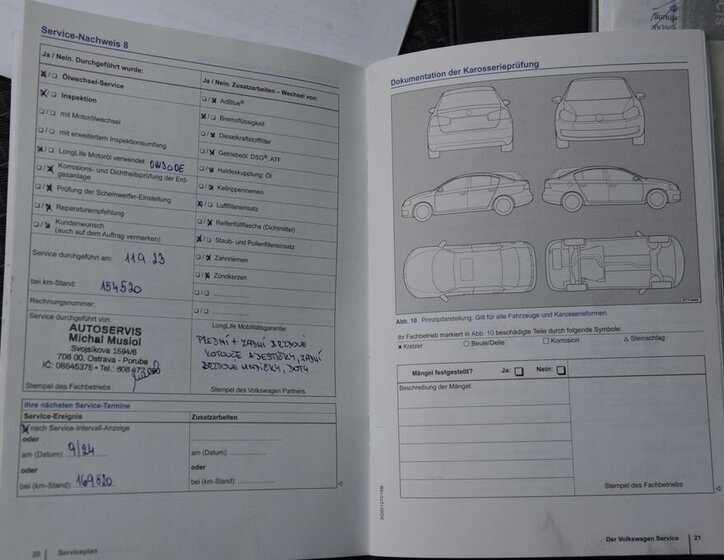 Service-Nachweis 8
Ja / Nein. Durchgeführt wurde:
x/❏ Ölwechsel-Service
x/❏ Inspektion
❏/❏ mit Motorölwechsel
❏/❏ mit erweitertem Inspektionsumfang
x/❏ LongLife Motoröl verwendet 0W30 DE
❏/x Korrosions- und Dichtheitsprüfung der Erd-
gasanlage
❏/x Prüfung der Scheinwerfer-Einstellung
❏/x Reparaturempfehlung
❏/x Kundenwunsch
(auch auf dem Auftrag vermerken)
Service durchgeführt am: 11.9.23
bei km-Stand: 154520
Rechnungsnummer:
Service durchgeführt von:
AUTOSERVIS
Michal Musiol
Svojsíkova 1594/6
708 00, Ostrava - Poruba
Stempel des Fachbetriebs
Ja / Nein. Zusatzarbeiten – Wechsel von:
❏/x AdBlue®
x/❏ Bremsflüssigkeit
❏/x Dieselkraftstofffilter
❏/x Getriebeöl: DSG®, ATF
❏/x Haldexkupplung: Öl
❏/x Keilrippenriemen
x/❏ Luftfiltereinsatz
❏/x Reifenfülltasche (Dichtmittel)
x/❏ Staub- und Pollenfiltereinsatz
❏/x Zahnriemen
❏/x Zündkerzen
❏/❏
❏/❏
LongLife Mobilitätsgarantie:
PŘEDNÍ + ZADNÍ BRZDOVÉ
KOTOUČE A DESTIČKY, ZADNÍ
BRZDOVÉ HADIČKY, DOT4
Stempel des Volkswagen Partners
Ihre nächsten Service-Termine
Service-Ereignis
Zusatzarbeiten
x nach Service-Intervall-Anzeige
oder
am (Datum): 9/24
oder
bei (km-Stand): 169520
am (Datum):
oder
bei (km-Stand):
20 Serviceplan
Dokumentation der Karosserieprüfung
Abb. 10 Prinzipdarstellung. Gilt für alle Fahrzeuge und Karosserieformen.
Ihr Fachbetrieb markiert in Abb. 10 beschädigte Teile durch folgende Symbole:
x Kratzer ○ Beule/Delle □ Korrosion △ Steinschlag
Mängel festgestellt? Ja: ❏ Nein: ❏
Beschreibung der Mängel:
Stempel des Fachbetriebs
Der Volkswagen Service 21